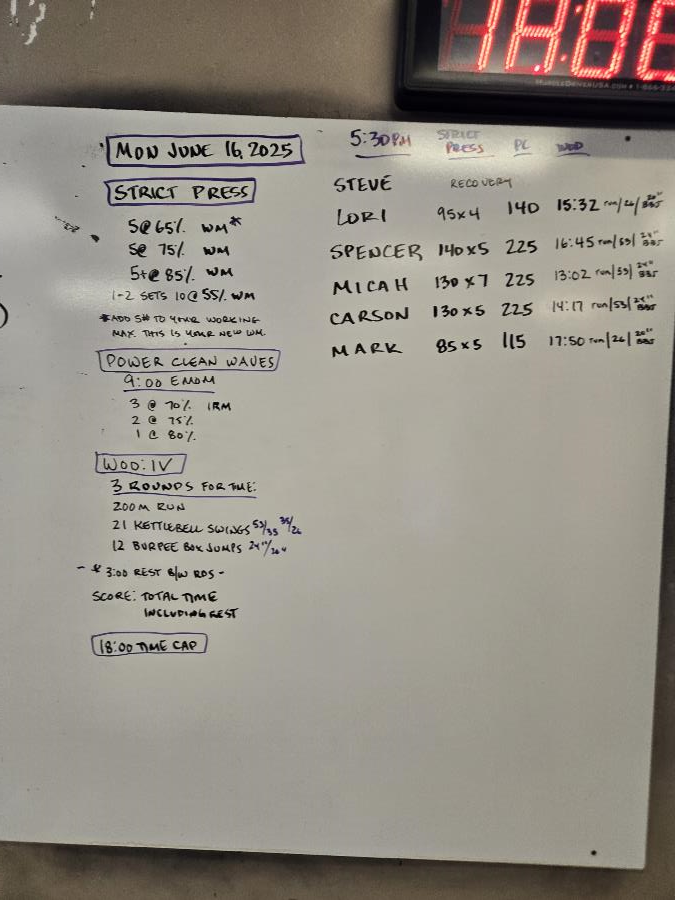 MON JUNE 16, 2025
STRICT PRESS
5@65% WM*
5@ 75% WM
5+@ 85% WM
1-2 SETS 10@55% WM
*ADD 5# TO YOUR WORKING
MAX. THIS IS YOUR NEW WM.
POWER CLEAN WAVES
9:00 EMOM
3 @ 70% 1RM
2 @ 75%
1 @ 80%
WOD: IV
3 ROUNDS FOR TIME:
200M RUN
21 KETTLEBELL SWINGS 53/35 35/26
12 BURPEE BOX JUMPS 24"/20"
- * 3:00 REST B/W RDS -
SCORE: TOTAL TIME
INCLUDING REST
18:00 TIME CAP
5:30PM STRICT PRESS PC WOD
STEVE RECOVERY
LORI 95x4 140 15:32 run/26/20" BBJ
SPENCER 140x5 225 16:45 run/53/24" BBJ
MICAH 130x7 225 13:02 run/53/24" BBJ
CARSON 130x5 225 14:17 run/53/24" BBJ
MARK 85x5 115 17:50 run/26/20" BBJ